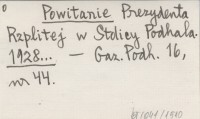 Powitanie Prezydenta
Rzplitej w Stolicy Podhala.
1928... — Gaz. Podh. 16,
nr 44.